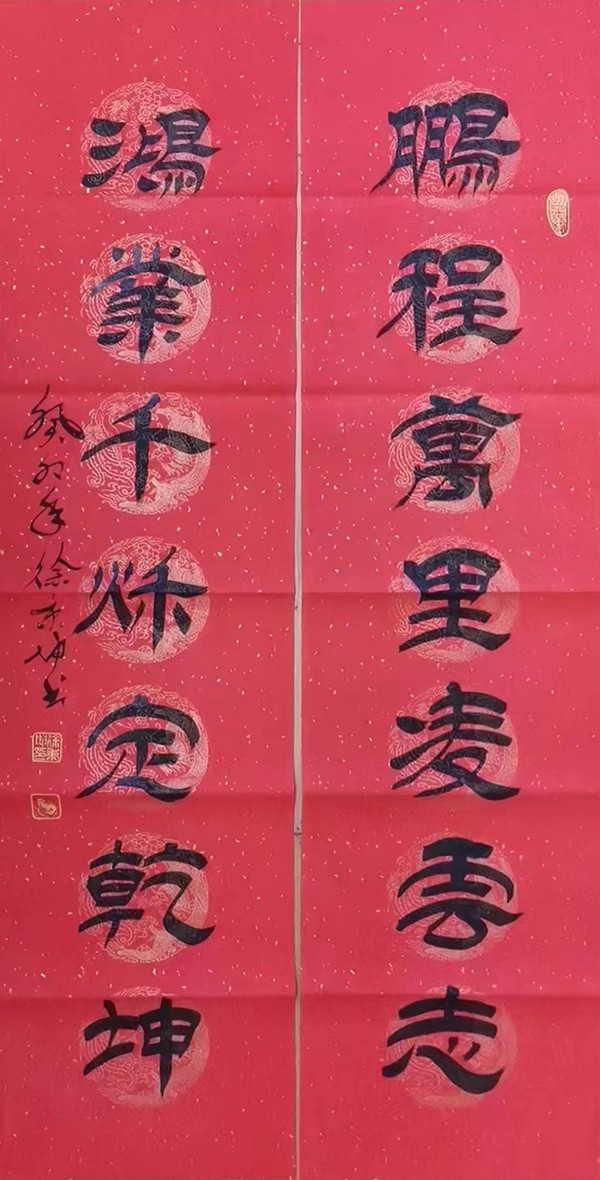 鵬程萬里凌雲志
鴻業千秋定乾坤
癸卯年徐